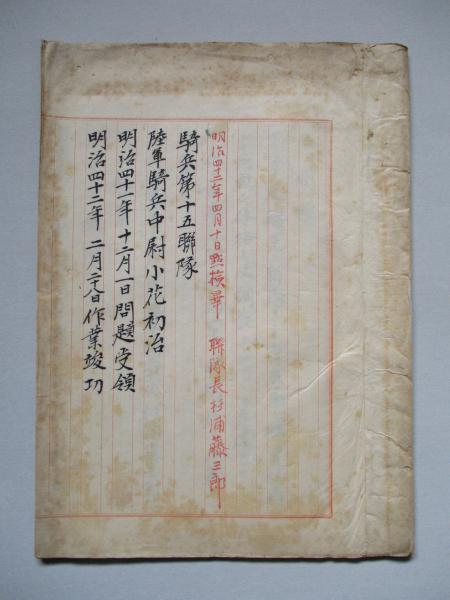 明治四十二年四月十日點撿畢 聯隊長杉浦藤三郎
騎兵第十五聯隊
陸軍騎兵中尉小花初治
明治四十一年十二月一日問題受領
明治四十二年二月二十八日作業竣功